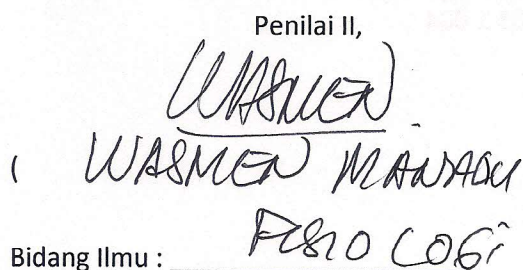 Penilai II,
WASMEN
WASMEN MANALU
Bidang Ilmu : FISIOLOGi